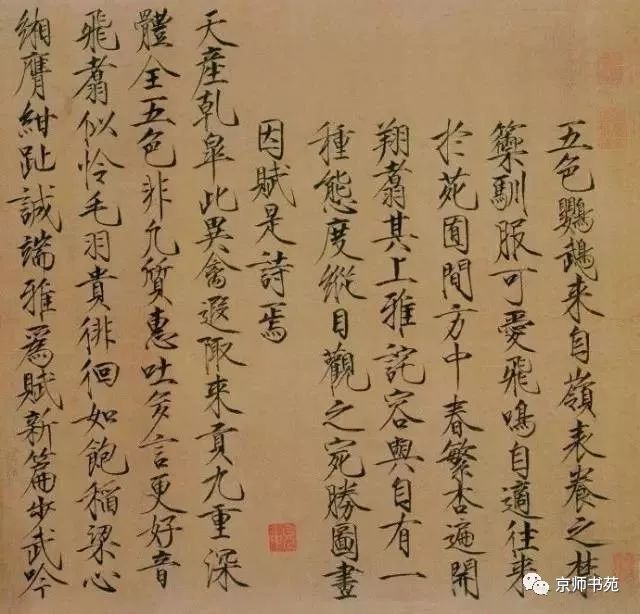 五色鸚鵡来自嶺表養之禁
籞馴服可愛飛鳴自適往来
於苑囿間方中春繁杏遍開
翔翥其上雅詫容與自有一
種態度縱目觀之宛勝圖畫
因賦是詩焉
天産乾皐此異禽遐陬来貢九重深
體全五色非凡質惠吐多言更好音
飛翥似怜毛羽貴徘徊如飽稲粱心
緗膺紺趾誠端雅爲賦新篇步武吟
京师书苑